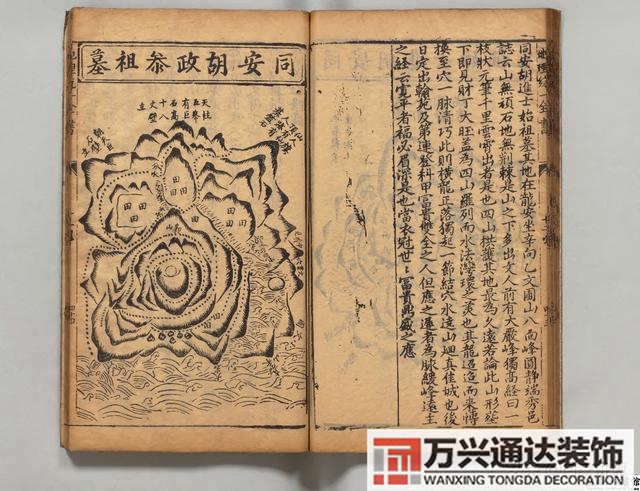 同安胡政叅祖墓
同安胡進士始祖墓其地在龍安坐辛向乙文圃山八面峰圓靜端秀邑
誌云山無頑石地無荆棘是山之下多出文人前有大嚴峰獨高經曰一
枝狀元筆千里雲霄出者是也四山拱護其地最為久遠若論此山形
下即見財丁大旺盖為四山羅列而水法灣環之義也其龍迢迢而来
換至穴一脉清巧此則橫龍正落獨起一節結穴水遶山廻真佳城也後
日定出翰苑及第連登科甲富貴雙全之人但應之遲者為脉緩峰遠主
之經云寬平者福必眉深是也當衣冠世〻富貴鼎盛之應
天柱
有巨
石高
十八
丈壁
田田
万兴通达装饰
WANXING TONGDA DECORATION